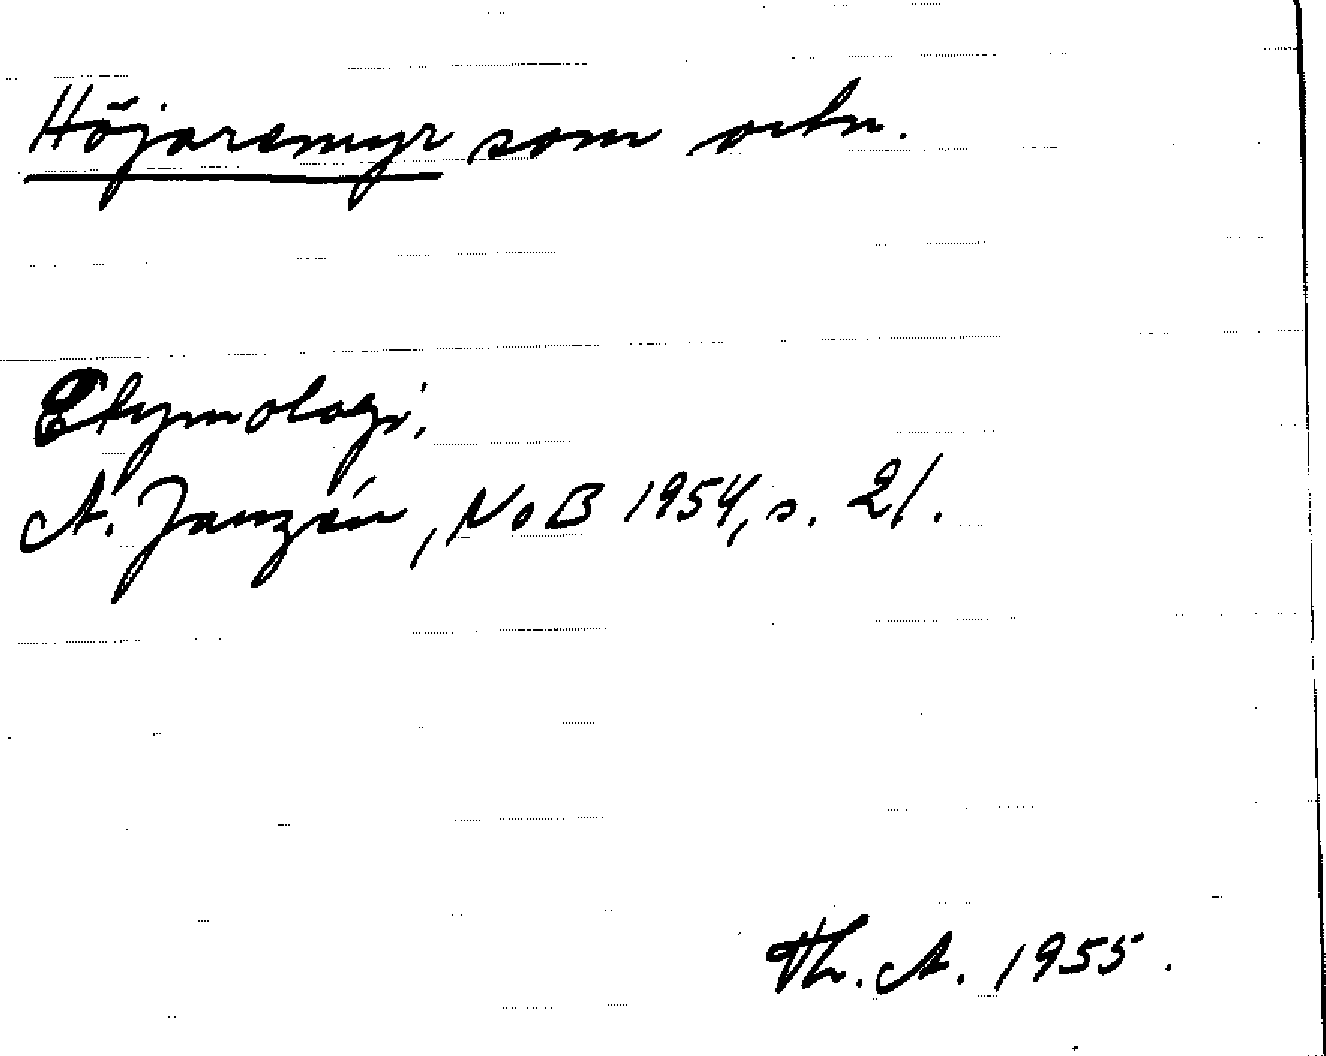 Höjaremyr som ortn.
Etymologi:
A. Janzén, NoB 1954, s. 21.
Th. A. 1955.